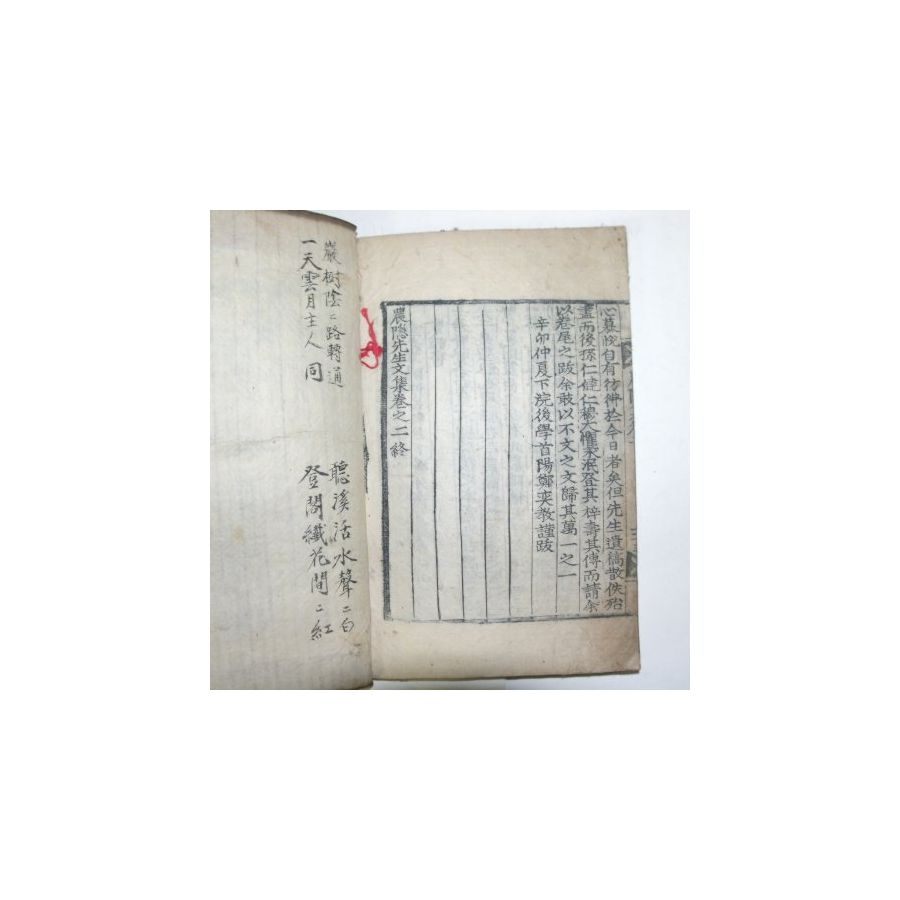 心慕悅自有彷彿於今日者矣但先生遺稿散佚殆
盡而後孫仁健仁穆大懼泯沒登其梓壽其傳而請余
以卷尾之跋余敢以不文之文歸其萬一之一
辛卯仲夏下浣後學首陽鄭奕敎謹跋
農隱先生文集卷之二終
巖樹陰ニ路轉通
聽溪活水聲ニ白
一天雲月主人同
登閣纖花間ニ紅